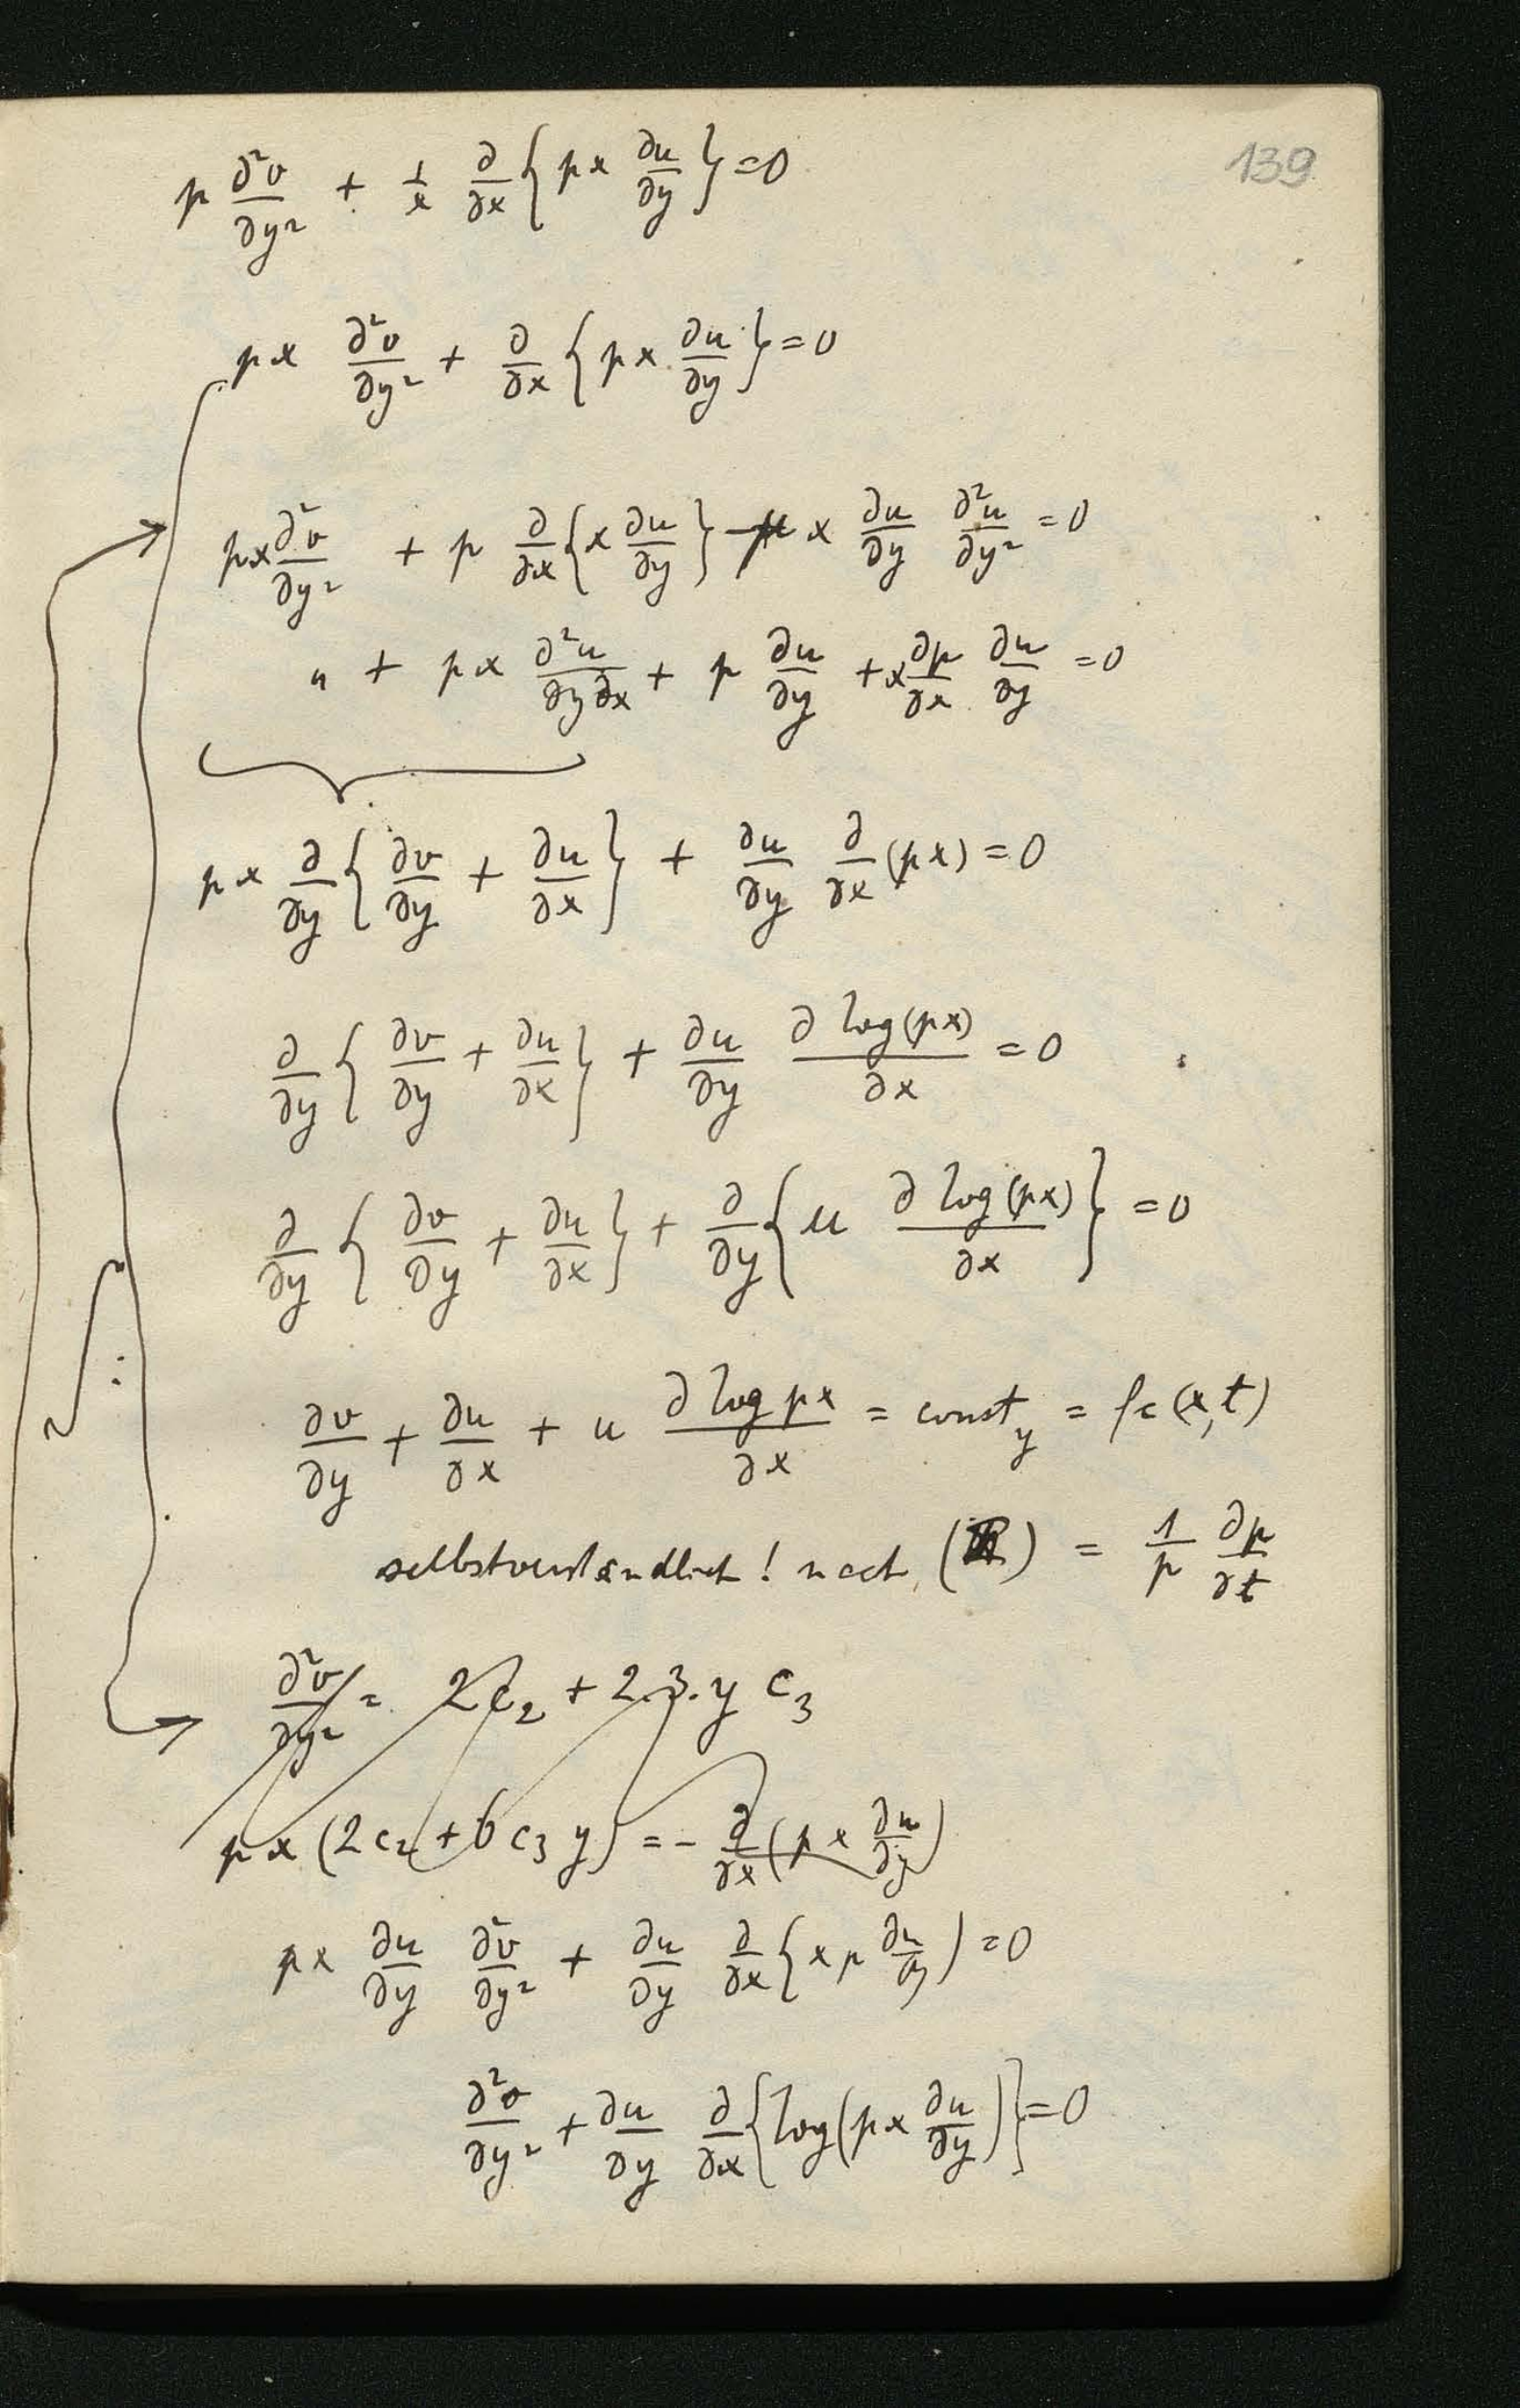 139
p ∂²v/∂y² + 1/x ∂/∂x {px ∂u/∂y} = 0
px ∂²v/∂y² + ∂/∂x {px ∂u/∂y} = 0
px ∂²v/∂y² + p ∂/∂x {x ∂u/∂y} - μ x ∂u/∂y ∂²u/∂y² = 0
" + px ∂²u/∂y∂x + p ∂u/∂y + x ∂p/∂x ∂u/∂y = 0
px ∂/∂y {∂v/∂y + ∂u/∂x} + ∂u/∂y ∂/∂x (px) = 0
∂/∂y {∂v/∂y + ∂u/∂x} + ∂u/∂y ∂ log(px)/∂x = 0
∂/∂y {∂v/∂y + ∂u/∂x} + ∂/∂y {u ∂ log(px)/∂x} = 0
∂v/∂y + ∂u/∂x + u ∂ log px/∂x = const_y = fc (x,t)
selbstverständlich! nach ( ) = 1/p ∂p/∂t
∂²v/∂y² = 2c₂ + 2.3.y c₃
px (2c₂ + 6c₃ y) = - ∂/∂x (px ∂u/∂y)
px ∂u/∂y ∂²v/∂y² + ∂u/∂y ∂/∂x {xp ∂u/∂y) = 0
∂²v/∂y² + ∂u/∂y ∂/∂x {log(px ∂u/∂y)} = 0